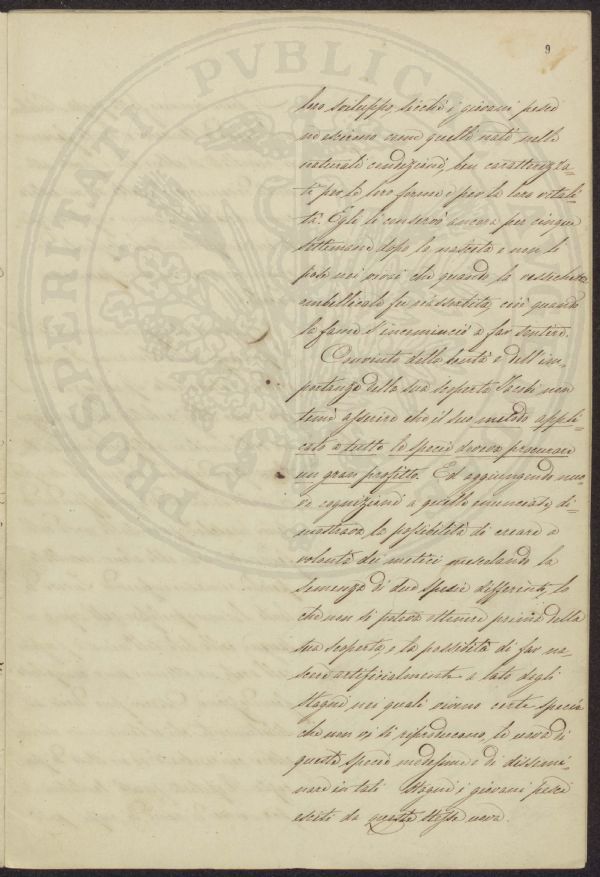 9
loro sviluppo, sicchè i giovani pesci
ne escirono come quelli nati nelle
naturali condizioni, ben caratterizza=
ti per le loro forme e per la loro vitali=
tà. Egli li conservò ancora per cinque
settimane dopo la nascita e non li
pose nei vivai che quando la vescichetta
ombellicale fu riassorbita, cioè quando
la fame s'incominciò a far sentire.
Convinto della bontà e dell'im=
portanza della sua scoperta Jacobi non
temè asserire che il suo metodo appli=
cato a tutte le specie doveva procurare
un gran profitto. Ed aggiungendo nuo=
ve cognizioni a quelle enunciate, di=
mostrava la possibilità di creare a
volontà dei meticci mescolando la
semenza di due specie differenti, lo
che non si poteva ottenere prima della
sua scoperta, e la possibilità di far na=
scere artificialmente a lato degli
stagni, nei quali vivono certe specie
che non vi si riproducono, le uova di
queste specie medesime e di dissemi=
nare in tali stagni i giovani pesci
esciti da queste stesse uova.
PROSPERITATI PVBLICA